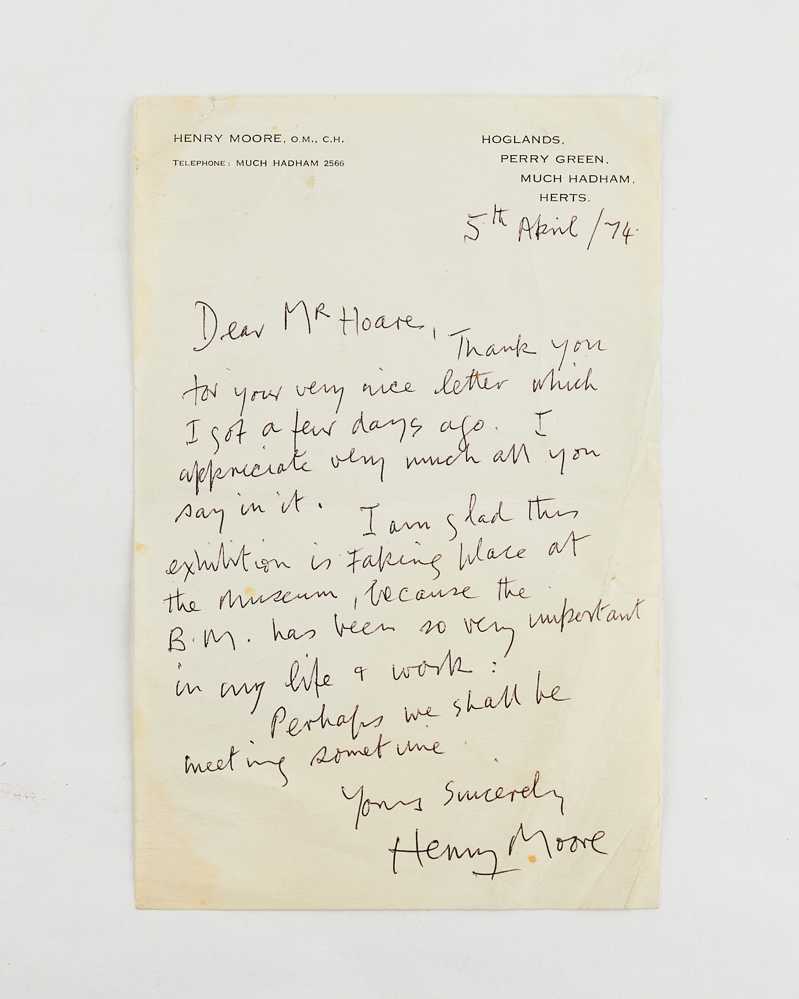 HENRY MOORE, O.M., C.H.
TELEPHONE: MUCH HADHAM 2566
HOGLANDS,
PERRY GREEN,
MUCH HADHAM,
HERTS.
5th April /74.
Dear Mr Hoare,
Thank you
for your very nice letter which
I got a few days ago. I
appreciate very much all you
say in it.
I am glad this
exhibition is taking place at
the Museum, because the
B.M. has been so very important
in my life & work:
Perhaps we shall be
meeting sometime.
Yours Sincerely
Henry Moore